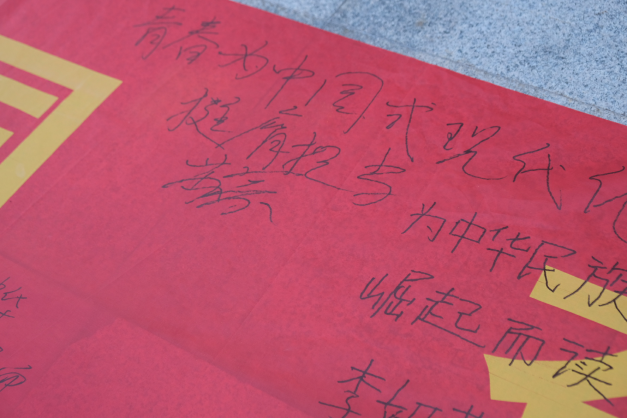 青春为中国式现代化
挺膺担当
为中华民族
崛起而读
李